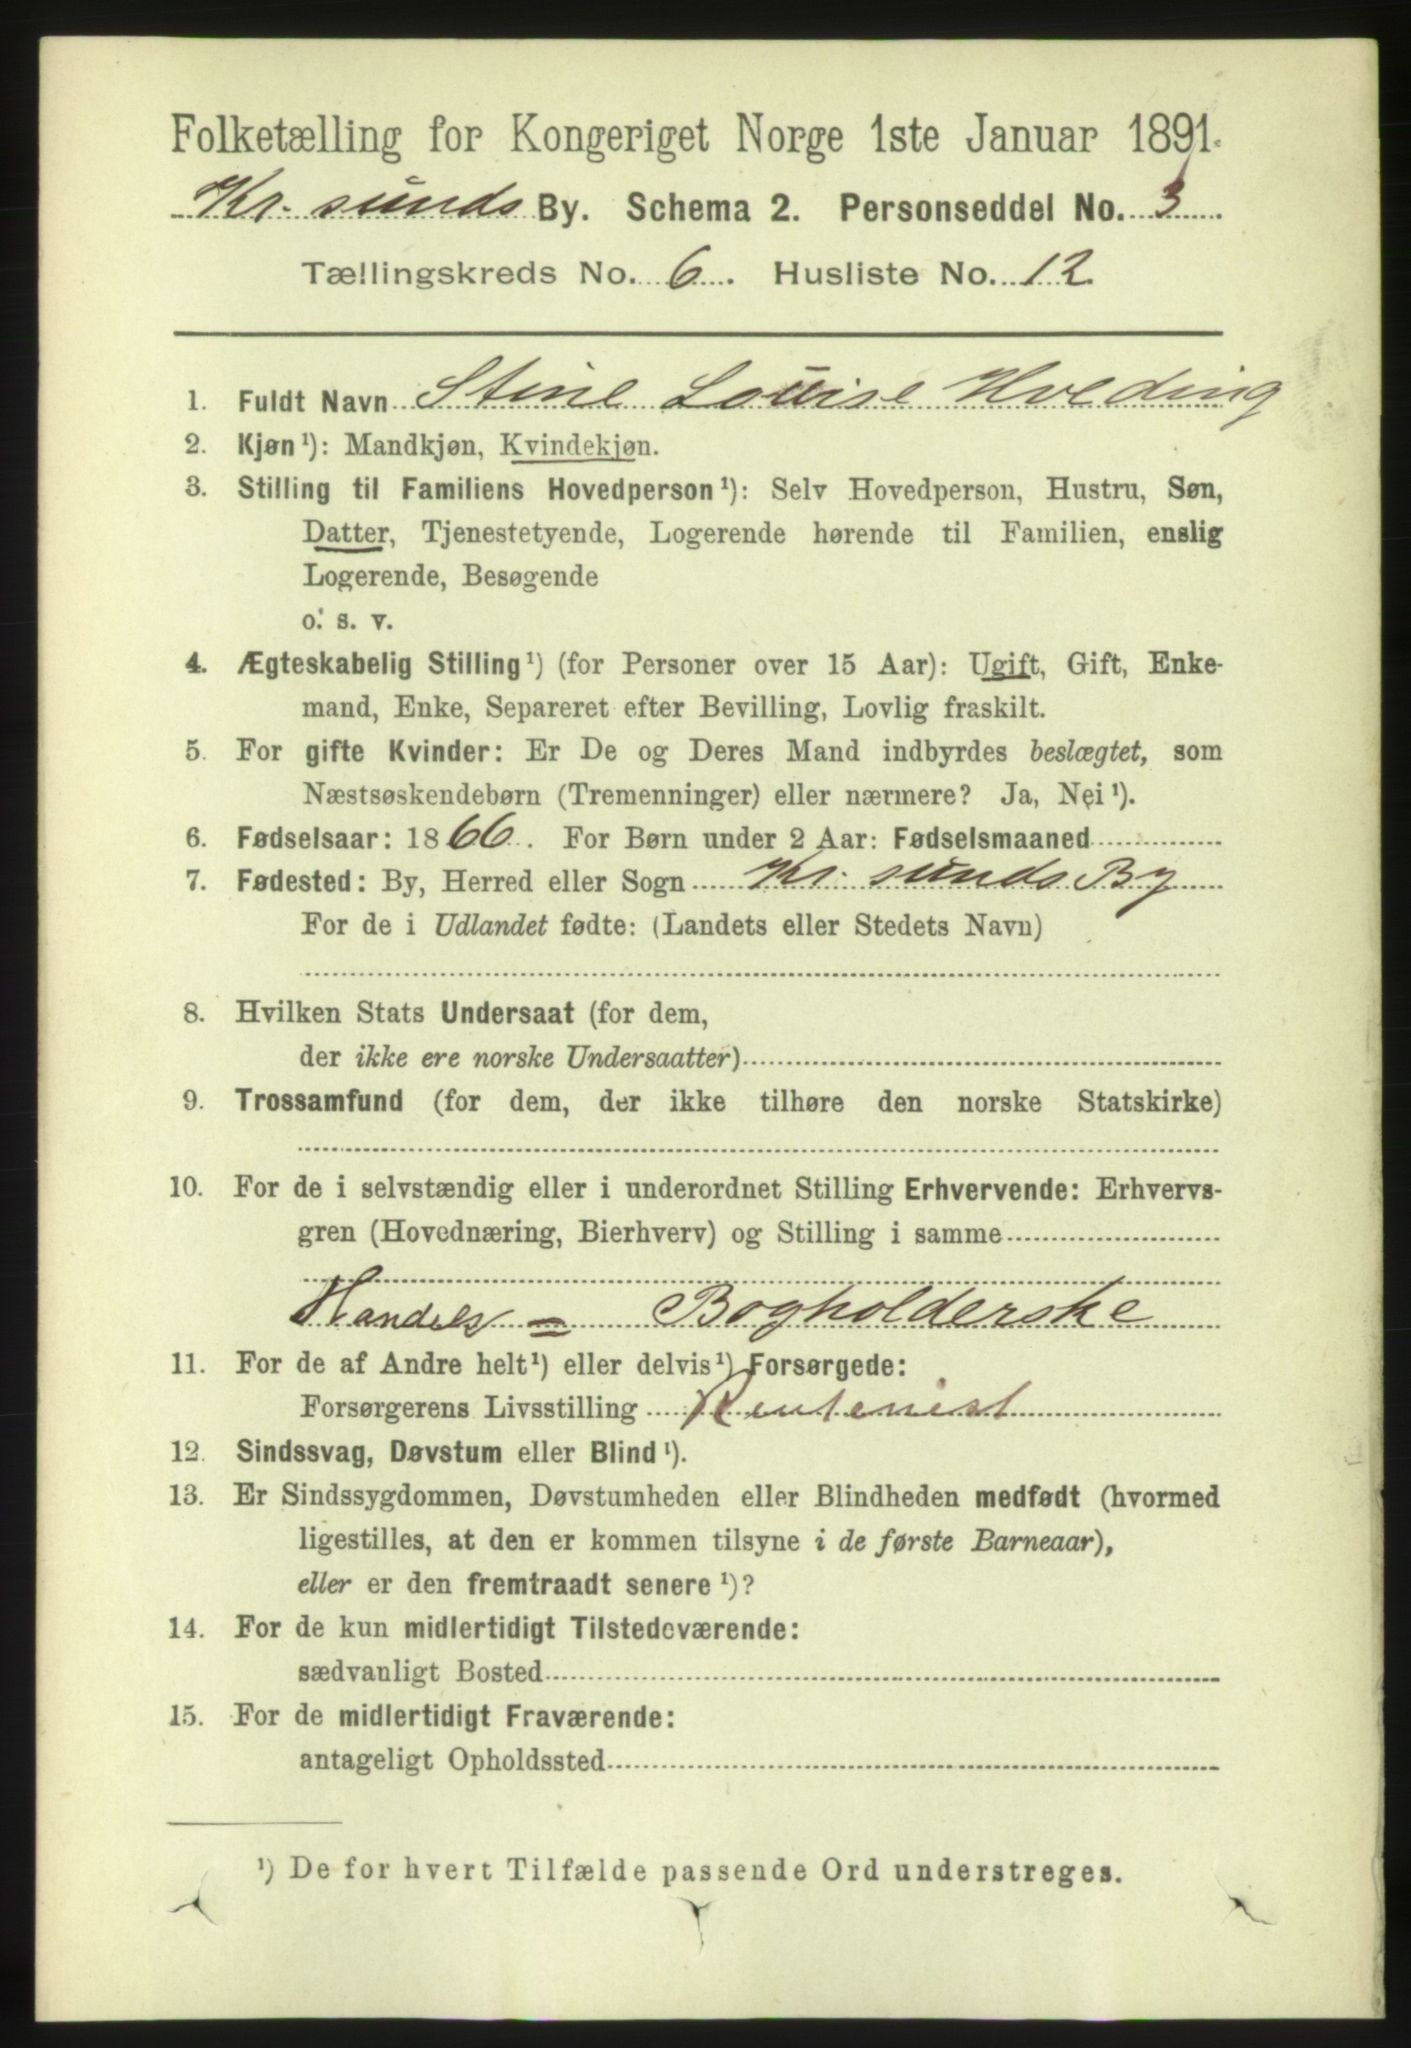 Folketælling for Kongeriget Norge 1ste Januar 1891.
Kr. sunds By. Schema 2. Personseddel No. 3
Tællingskreds No. 6. Husliste No. 12
1. Fuldt Navn Stine Louise Hveding
2. Kjøn¹): Mandkjøn, Kvindekjøn.
3. Stilling til Familiens Hovedperson¹): Selv Hovedperson, Hustru, Søn,
Datter, Tjenestetyende, Logerende hørende til Familien, enslig
Logerende, Besøgende
o. s. v.
4. Ægteskabelig Stilling¹) (for Personer over 15 Aar): Ugift, Gift, Enke-
mand, Enke, Separeret efter Bevilling, Lovlig fraskilt.
5. For gifte Kvinder: Er De og Deres Mand indbyrdes beslægtet, som
Næstsøskendebørn (Tremenninger) eller nærmere? Ja, Nei¹).
6. Fødselsaar: 1866. For Børn under 2 Aar: Fødselsmaaned
7. Fødested: By, Herred eller Sogn Kr. sunds By
For de i Udlandet fødte: (Landets eller Stedets Navn)
8. Hvilken Stats Undersaat (for dem,
der ikke ere norske Undersaatter)
9. Trossamfund (for dem, der ikke tilhøre den norske Statskirke)
10. For de i selvstændig eller i underordnet Stilling Erhvervende: Erhvervs-
gren (Hovednæring, Bierhverv) og Stilling i samme
Handels = Bogholderske
11. For de af Andre helt¹) eller delvis¹) Forsørgede:
Forsørgerens Livsstilling Rentenist
12. Sindssvag, Døvstum eller Blind¹).
13. Er Sindssygdommen, Døvstumheden eller Blindheden medfødt (hvormed
ligestilles, at den er kommen tilsyne i de første Barneaar),
eller er den fremtraadt senere¹)?
14. For de kun midlertidigt Tilstedeværende:
sædvanligt Bosted
15. For de midlertidigt Fraværende:
antageligt Opholdssted
¹) De for hvert Tilfælde passende Ord understreges.